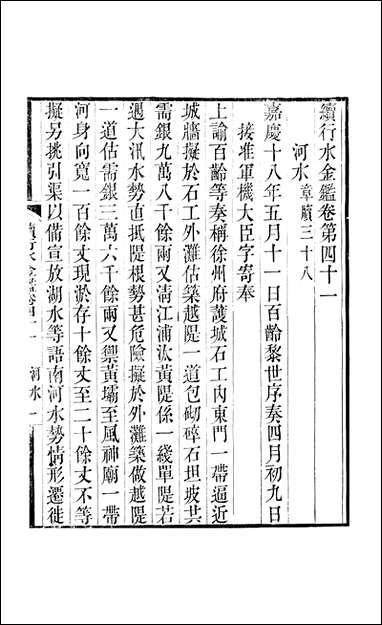 續行水金鑑卷第四十一
河水 章牘三十八
嘉慶十八年五月十一日百齡黎世序奏四月初九日
接准軍機大臣字寄奉
上諭百齡等奏稱徐州府護城石工內東門一帶逼近
城牆擬於石工外灘估築越隄一道包砌碎石坦坡共
需銀九萬八千餘兩又淸江浦汰黃隄係一綫單隄若
遇大汛水勢直抵隄根勢甚危險擬於外灘築做越隄
一道估需銀三萬六千餘兩又禦黃壩至風神廟一帶
河身向寬一百餘丈現淤存十餘丈至二十餘丈不等
擬另挑引渠以備宣放湖水等語南河水勢情形遷徙
續行水金鑑卷四十一 河水 一